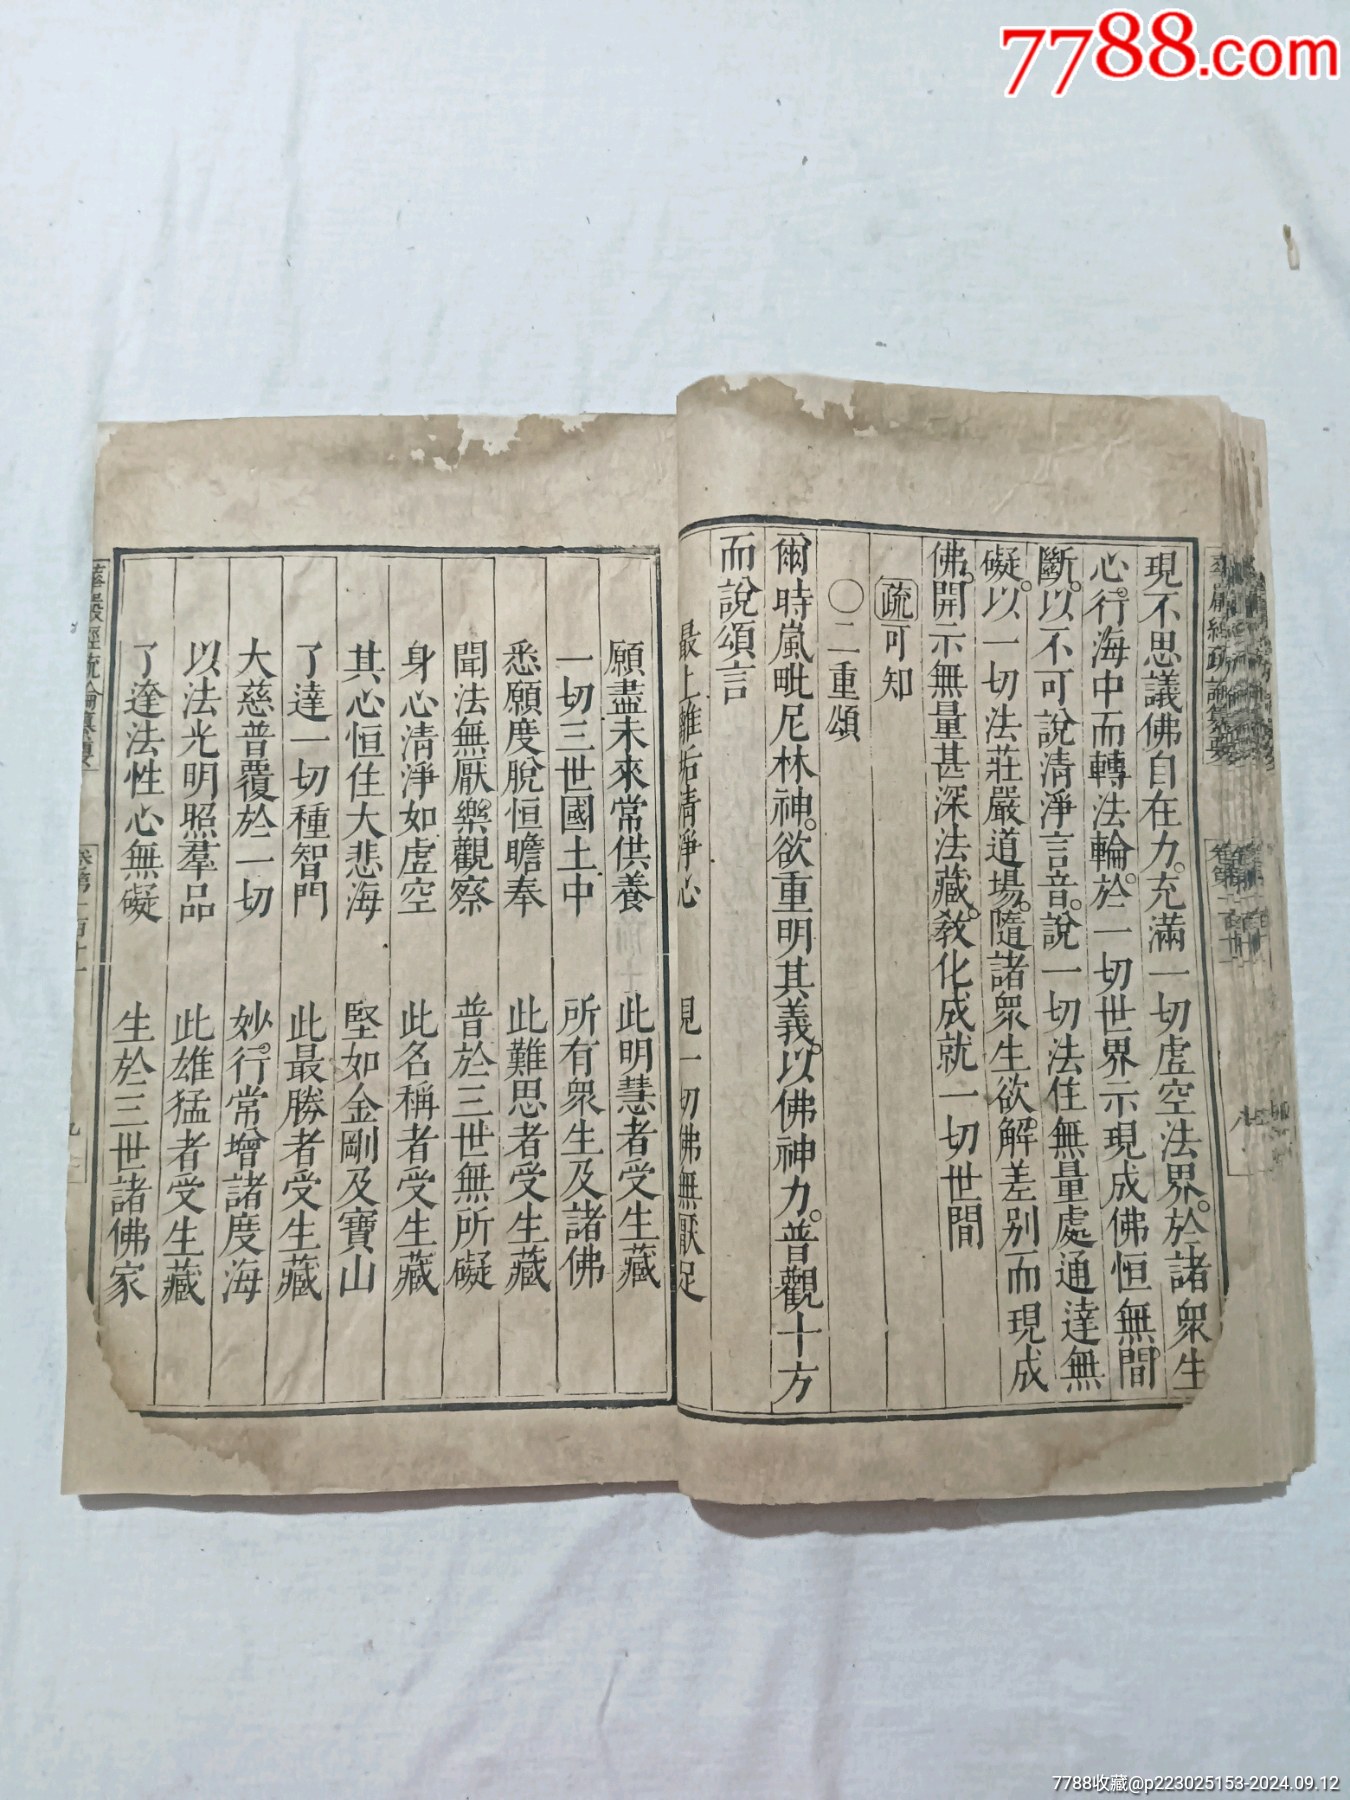 7788.com
現不思議佛自在力充滿一切虛空法界於諸衆生
心行海中而轉法輪於一切世界示現成佛恒無間
斷以不可說清淨言音說一切法住無量處通達無
礙以一切法莊嚴道場隨諸衆生欲解差別而現成
佛開示無量甚深法藏教化成就一切世間
疏可知
〇二重頌
爾時嵐毗尼林神欲重明其義以佛神力普觀十方
而說頌言
最上離垢清淨心 見一切佛無厭足
願盡未來常供養 此明慧者受生藏
一切三世國土中 所有衆生及諸佛
悉願度脫恒瞻奉 此難思者受生藏
聞法無厭樂觀察 普於三世無所礙
身心清淨如虛空 此名稱者受生藏
其心恒住大悲海 堅如金剛及寶山
了達一切種智門 此最勝者受生藏
大慈普覆於一切 妙行常增諸度海
以法光明照羣品 此雄猛者受生藏
了達法性心無礙 生於三世諸佛家
7788收藏@p223025153-2024.09.12